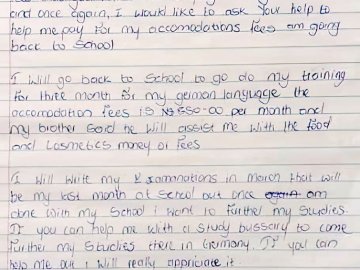 and once again, I would like to ask your help to
help me pay for my accomodations fees am going
back to School
I will go back to School to go do my training
for three month for my german language the
accomodation fees is N$550-00 per month and
my brother Said he will assist me with the food
and Cosmetics money or fees
I will write my Examinations in March that will
be my last month at School but once am
done with my School i want to further my Studies.
If you can help me with a study bussary to come
further my Studies there in Germany. If you can
help me out i will really appriciate it.